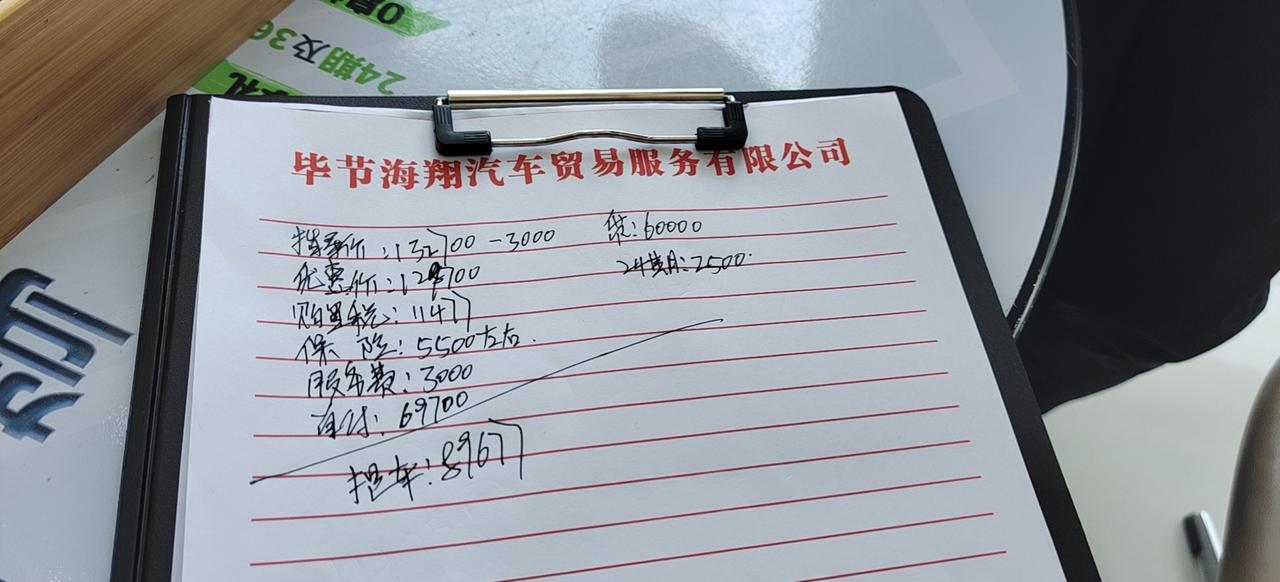 24期及36
毕节海翔汽车贸易服务有限公司
指导价:132700-3000
优惠价:129700
购置税:11477
保 险:5500左右.
服务费:3000
首付:69700
提车:89677
贷:60000
24期月:2500.